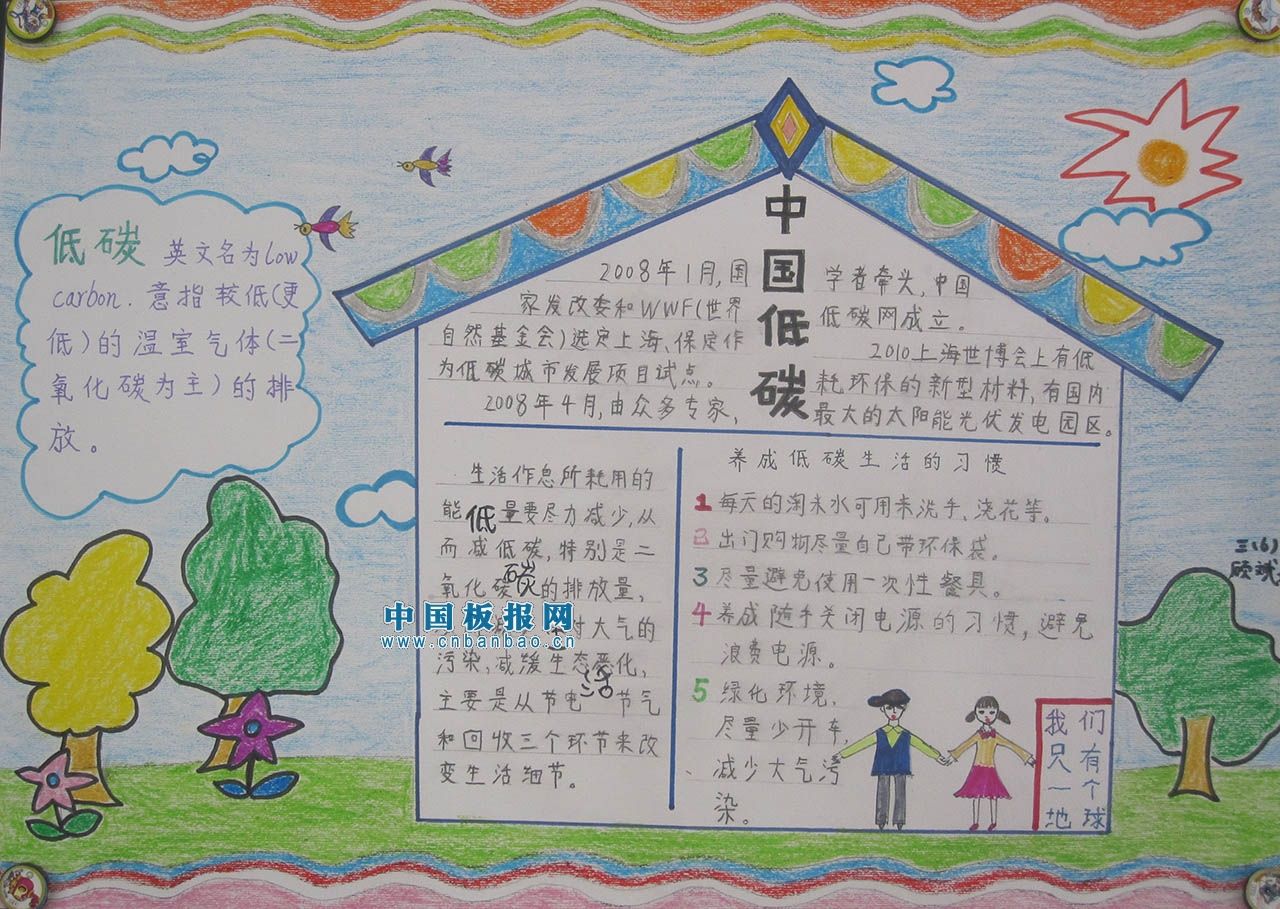 低碳 英文名为low
carbon. 意指较低(更
低)的温室气体(二
氧化碳为主)的排
放。
中国低碳
2008年1月,国
家发改委和WWF(世界
自然基金会)选定上海、保定作
为低碳城市发展项目试点。
2008年4月,由众多专家,
学者牵头,中国
低碳网成立。
2010上海世博会上有低
耗环保的新型材料,有国内
最大的太阳能光伏发电园区。
生活作息所耗用的
能量要尽力减少,从
而减低碳,特别是二
氧化碳的排放量,
对大气的
污染,减缓生态恶化,
主要是从节电 节气
和回收三个环节来改
变生活细节。
低
碳
生
活
养成低碳生活的习惯
1 每天的淘米水可用来洗手、浇花等。
2 出门购物尽量自己带环保袋。
3 尽量避免使用一次性餐具。
4 养成随手关闭电源的习惯,避免
浪费电源。
5 绿化环境,
尽量少开车,
减少大气污
染。
我们
只有
一个
地球
三(6)
中国板报网
www.cnbanbao.cn